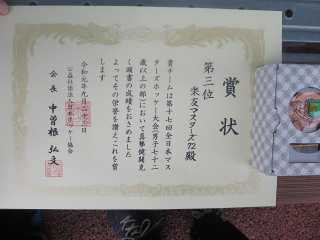 賞状
第三位
栄友マスターズ72殿
貴チームは第十七回全日本マス
ターズホッケー大会(男子七十二
歳以上の部)において真摯健闘克
く頭書の成績をおさめました
よってその栄誉を讃えこれを賞
します
令和元年九月二十七日
公益社団法人日本ホッケー協会
会長 中曽根弘文